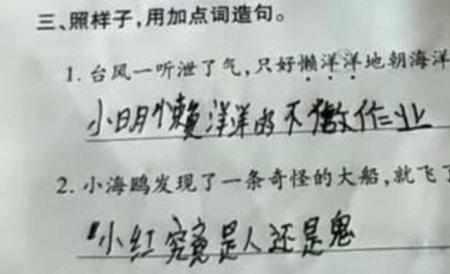 三、照样子,用加点词造句。
1. 台风一听泄了气,只好懒洋洋地朝海洋
小明懒洋洋的不做作业
2. 小海鸥发现了一条奇怪的大船,就飞了
小红究竟是人还是鬼